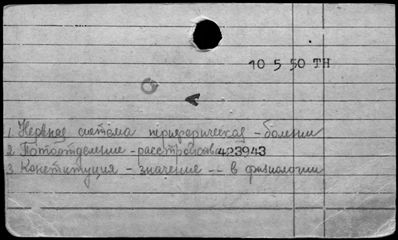 10 5 50 TH
1. Нервная система периферическая - болезни
2. Потоотделение - расстройства 423943
3. Конституция - значение -- в физиологии